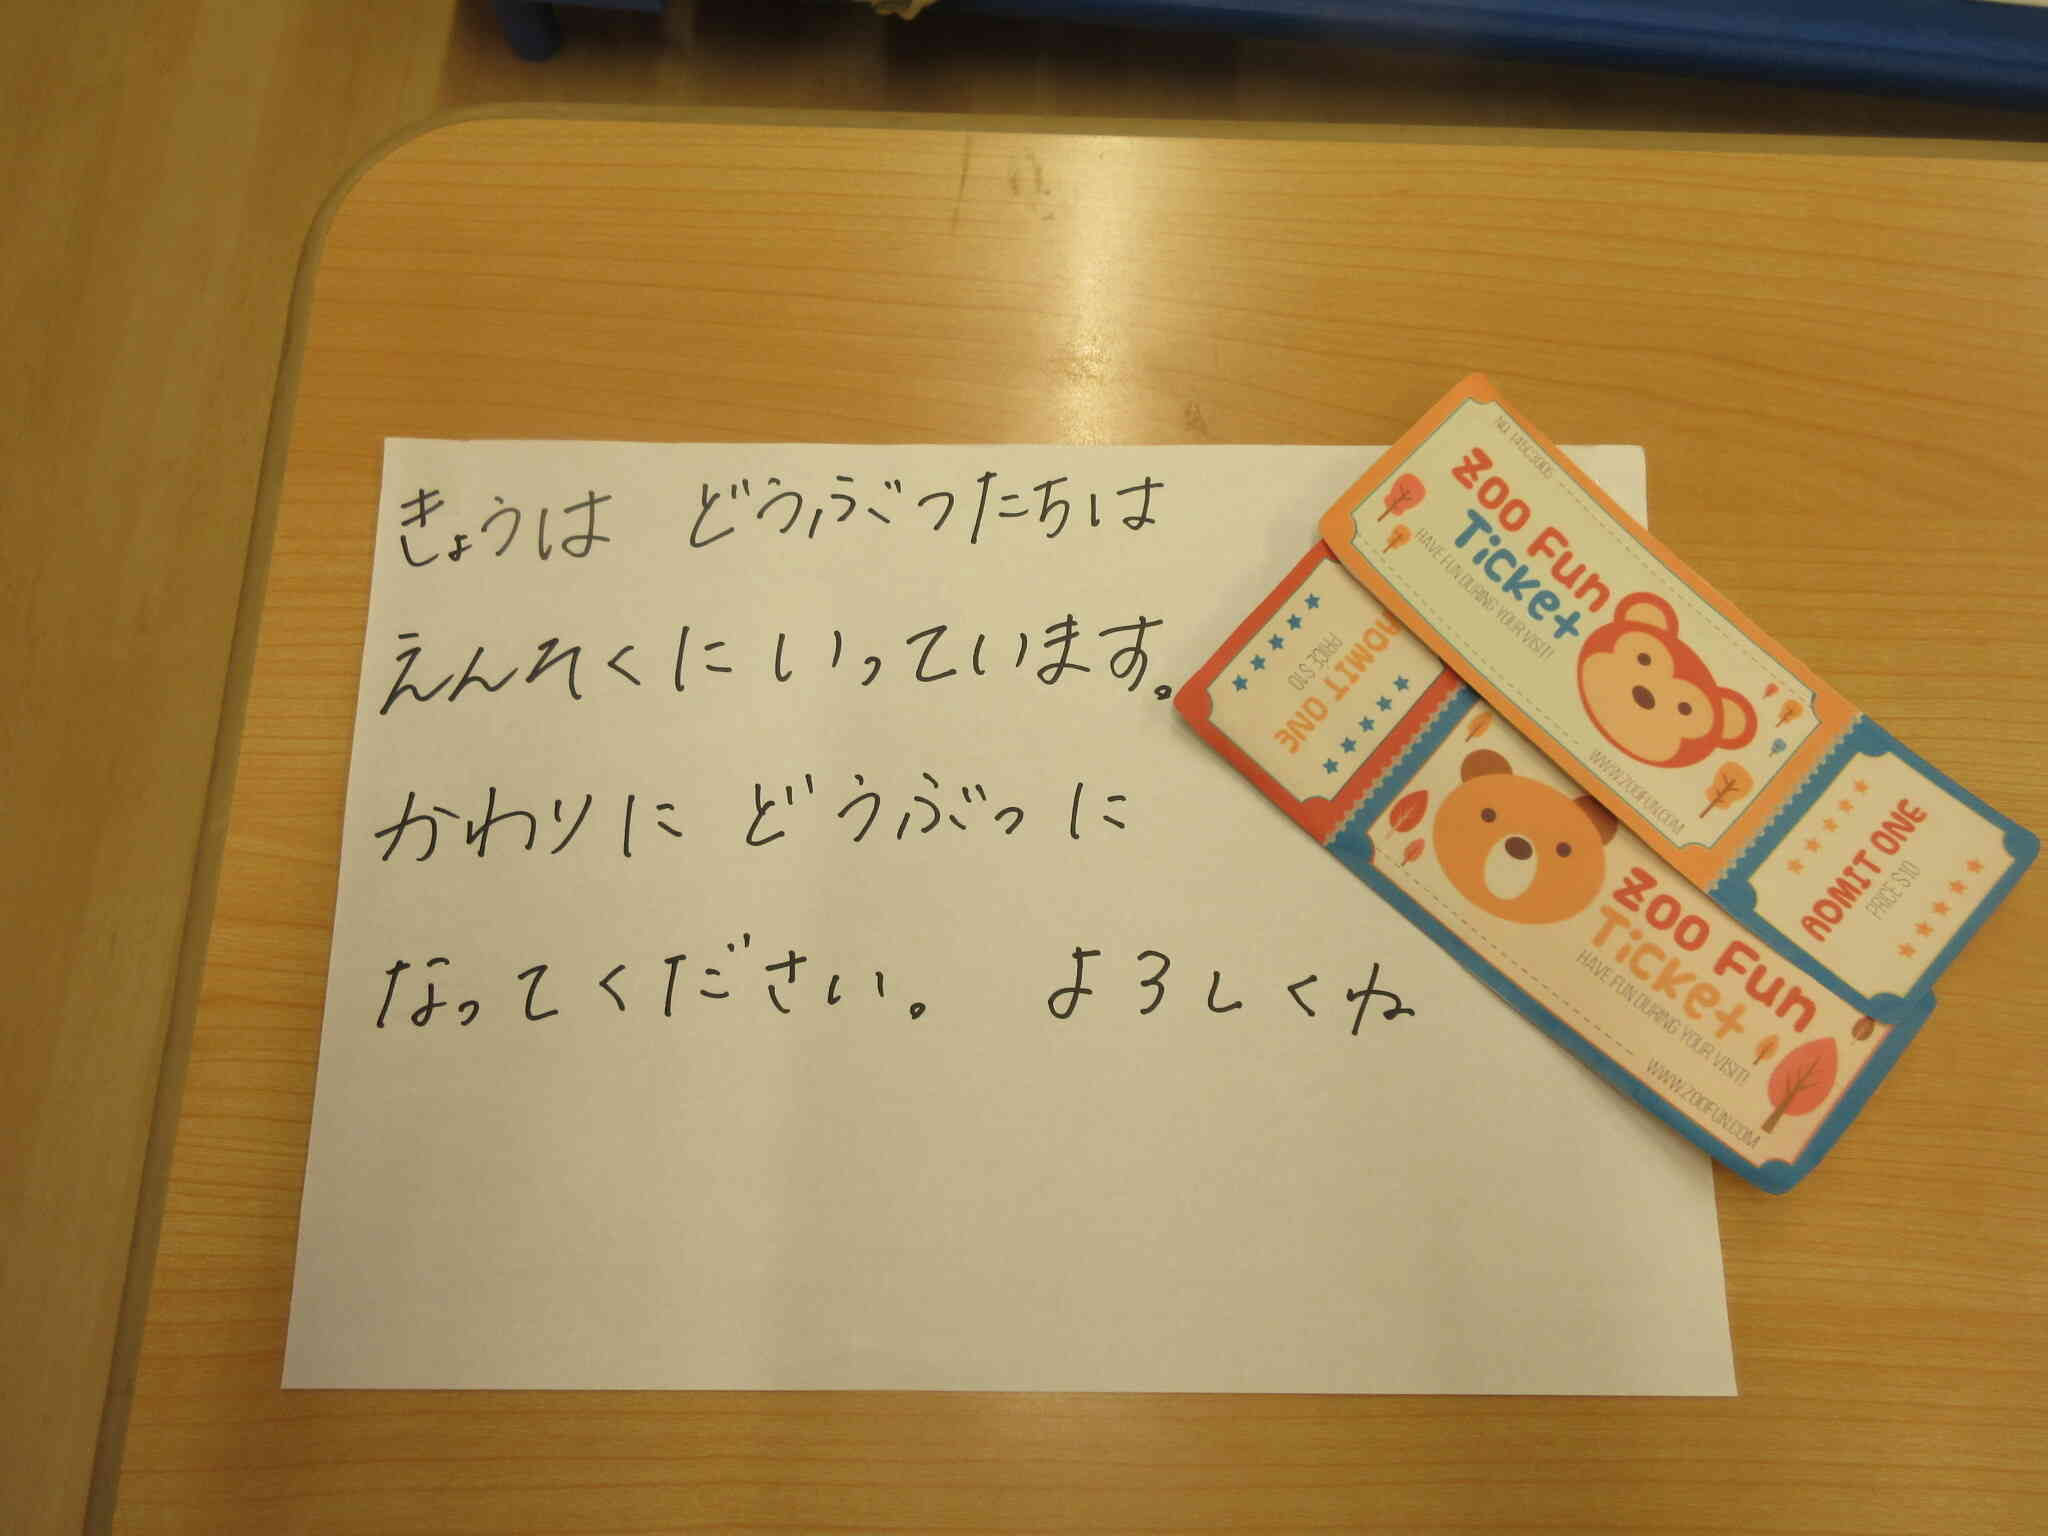 きょうは どうぶつたちは
えんそくに いっています。
かわりに どうぶつに
なってください。 よろしくね
ZOO Fun
Ticket
HAVE FUN DURING YOUR VISIT!
WWW.ZOOFUN.COM
ADMIT ONE
PRICE $10
ADMIT ONE
PRICE $10
ZOO Fun
Ticket
HAVE FUN DURING YOUR VISIT!
WWW.ZOOFUN.COM